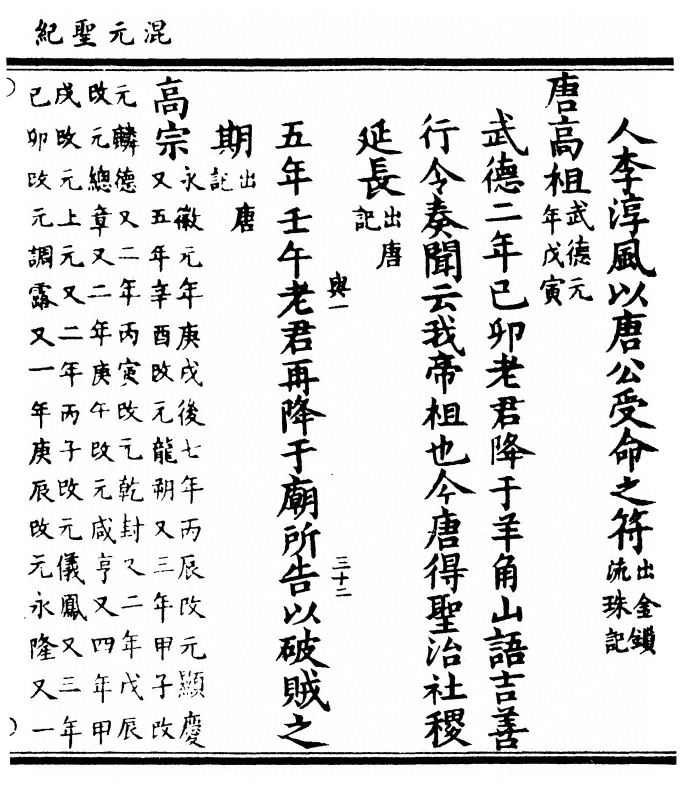 混元聖紀
人李淳風以唐公受命之符出金鎖
流珠記
唐高祖武德元
年戊寅
武德二年已卯老君降于羊角山語吉善
行令奏聞云我帝祖也今唐得聖治社稷
延長出唐
記
與一
三十二
五年壬午老君再降于廟所告以破賊之
期出唐
記
高宗永徽元年庚戌後七年丙辰改元顯慶
又五年辛酉改元龍朔又三年甲子改
元麟德又二年丙寅改元乾封又二年戊辰
改元總章又二年庚午改元咸亨又四年甲
戌改元上元又二年丙子改元儀鳳又三年
已卯改元調露又一年庚辰改元永隆又一